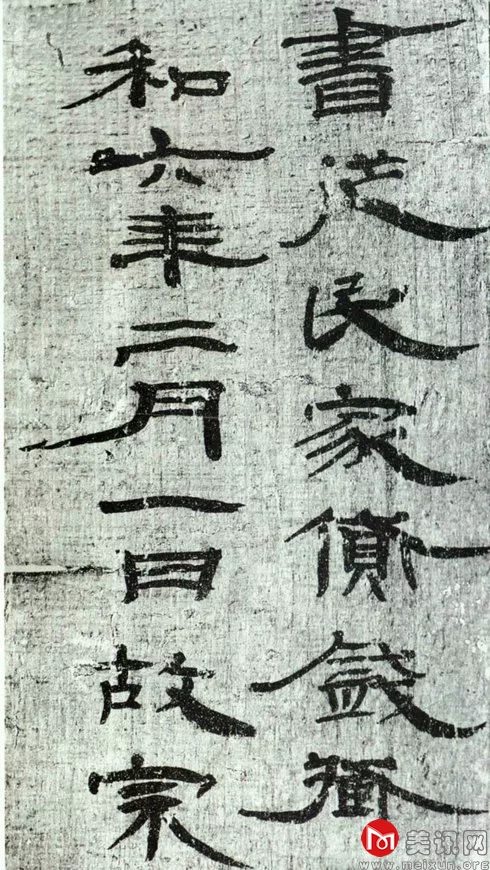 書民家錢
和六年二月一日故宗
美讯网
www.meixun.org